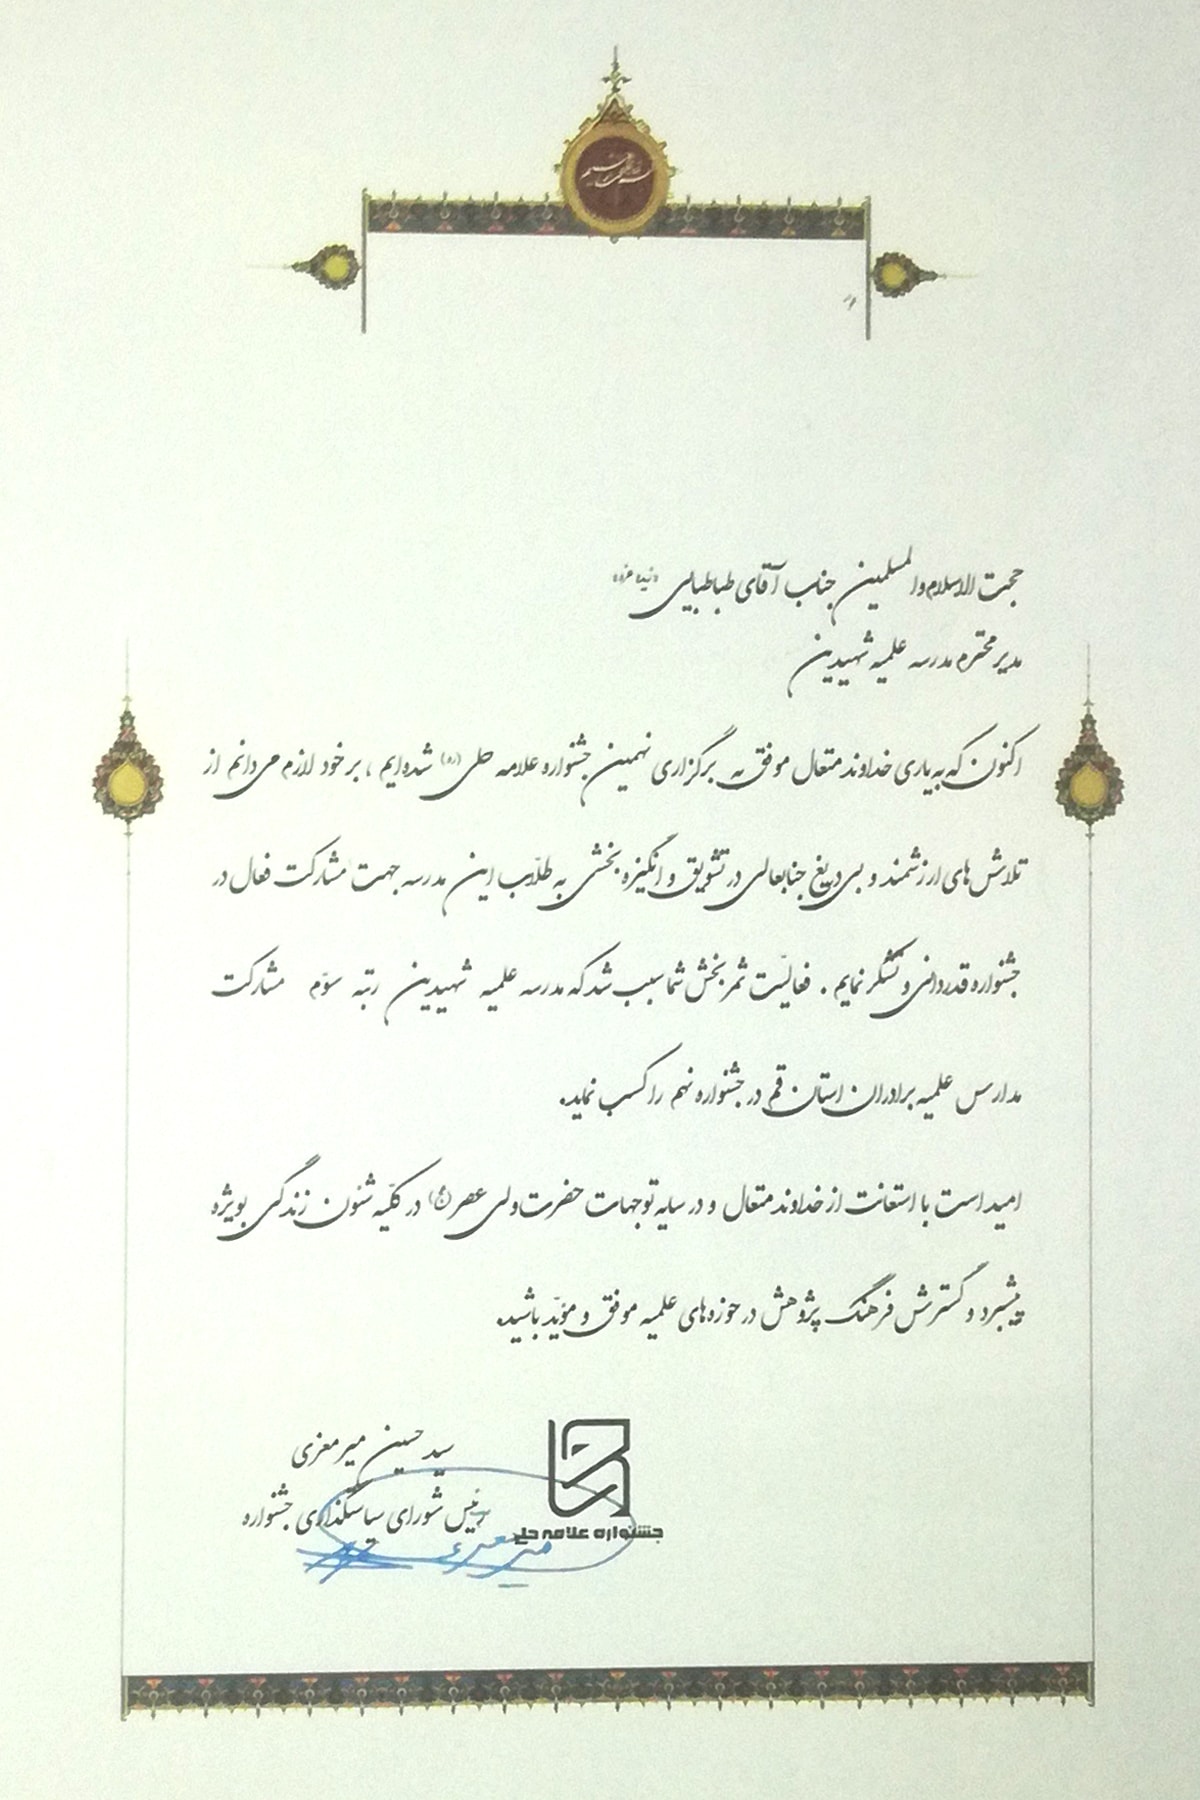 بسم الله الرحمن الرحیم
حجت الاسلام والمسلمین جناب آقای طباطبایی «زید عزه»
مدیر محترم مدرسه علمیه شهیدین
اکنون که به یاری خداوند متعال موفق به برگزاری نهمین جشنواره علامه حلی (ره) شده‌ایم، بر خود لازم می‌دانم از
تلاش‌های ارزشمند و بی‌دریغ جنابعالی در تشویق و انگیزه بخشی به طلّاب این مدرسه جهت مشارکت فعال در
جشنواره قدردانی و تشکر نمایم. فعالیّت ثمربخش شما سبب شد که مدرسه علمیه شهیدین رتبه سوّم مشارکت
مدارس علمیه برادران استان قم در جشنواره نهم را کسب نماید.
امید است با استعانت از خداوند متعال و در سایه توجهات حضرت ولی عصر (عج) در کلیّه شئون زندگی بویژه
پیشبرد و گسترش فرهنگ پژوهش در حوزه‌های علمیه موفق و مؤیّد باشید.
سید حسین میرمعزی
رئیس شورای سیاستگذاری جشنواره
جشنواره علامه حلی